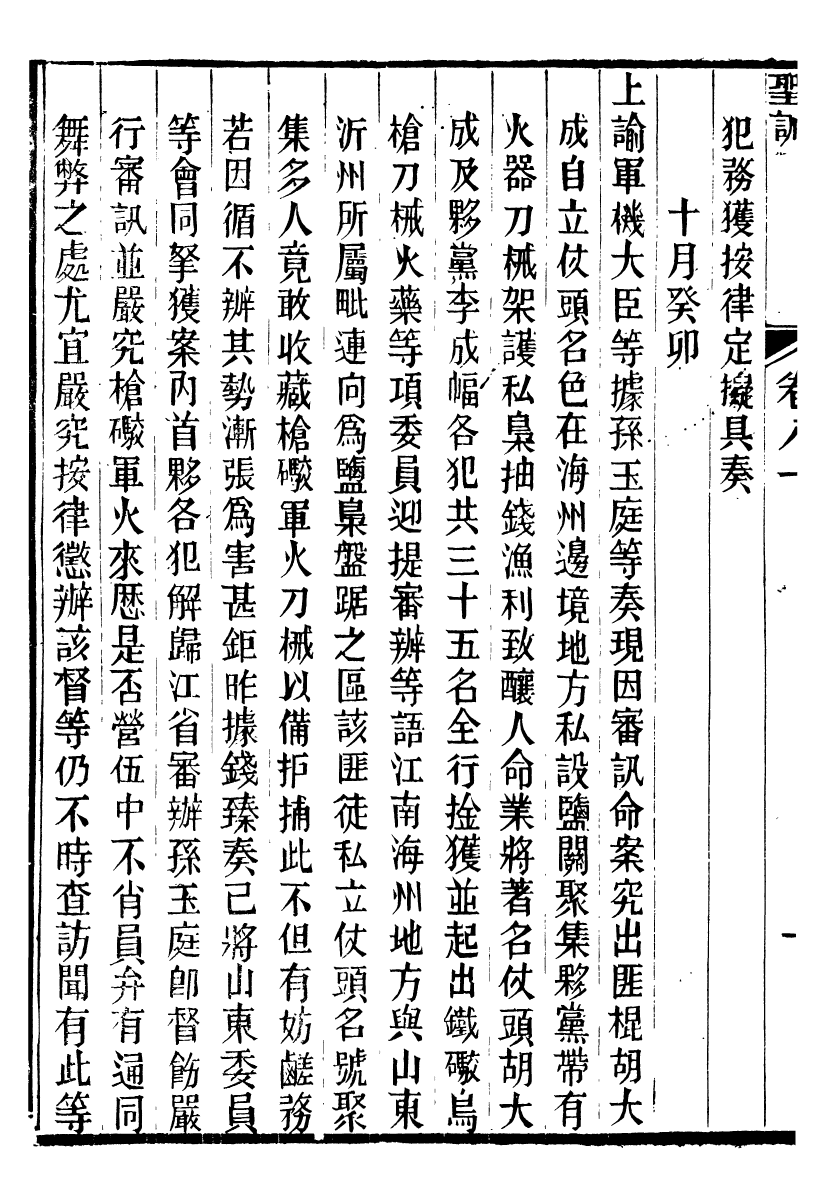 聖訓
卷八十一
一
犯務獲按律定擬具奏
十月癸卯
上諭軍機大臣等據孫玉庭等奏現因審訊命案究出匪棍胡大
成自立仗頭名色在海州邊境地方私設鹽關聚集夥黨帶有
火器刀械架護私梟抽錢漁利致釀人命業將著名仗頭胡大
成及夥黨李成幅各犯共三十五名全行拴獲並起出鐵礮鳥
槍刀械火藥等項委員迎提審辦等語江南海州地方與山東
沂州所屬毗連向爲鹽梟盤踞之區該匪徒私立仗頭名號聚
集多人竟敢收藏槍礮軍火刀械以備拒捕此不但有妨鹺務
若因循不辦其勢漸張爲害甚鉅昨據錢臻奏已將山東委員
等會同拏獲案內首夥各犯解歸江省審辦孫玉庭卽督飭嚴
行審訊並嚴究槍礮軍火來歷是否營伍中不肖員弁有通同
舞弊之處尤宜嚴究按律懲辦該督等仍不時查訪聞有此等